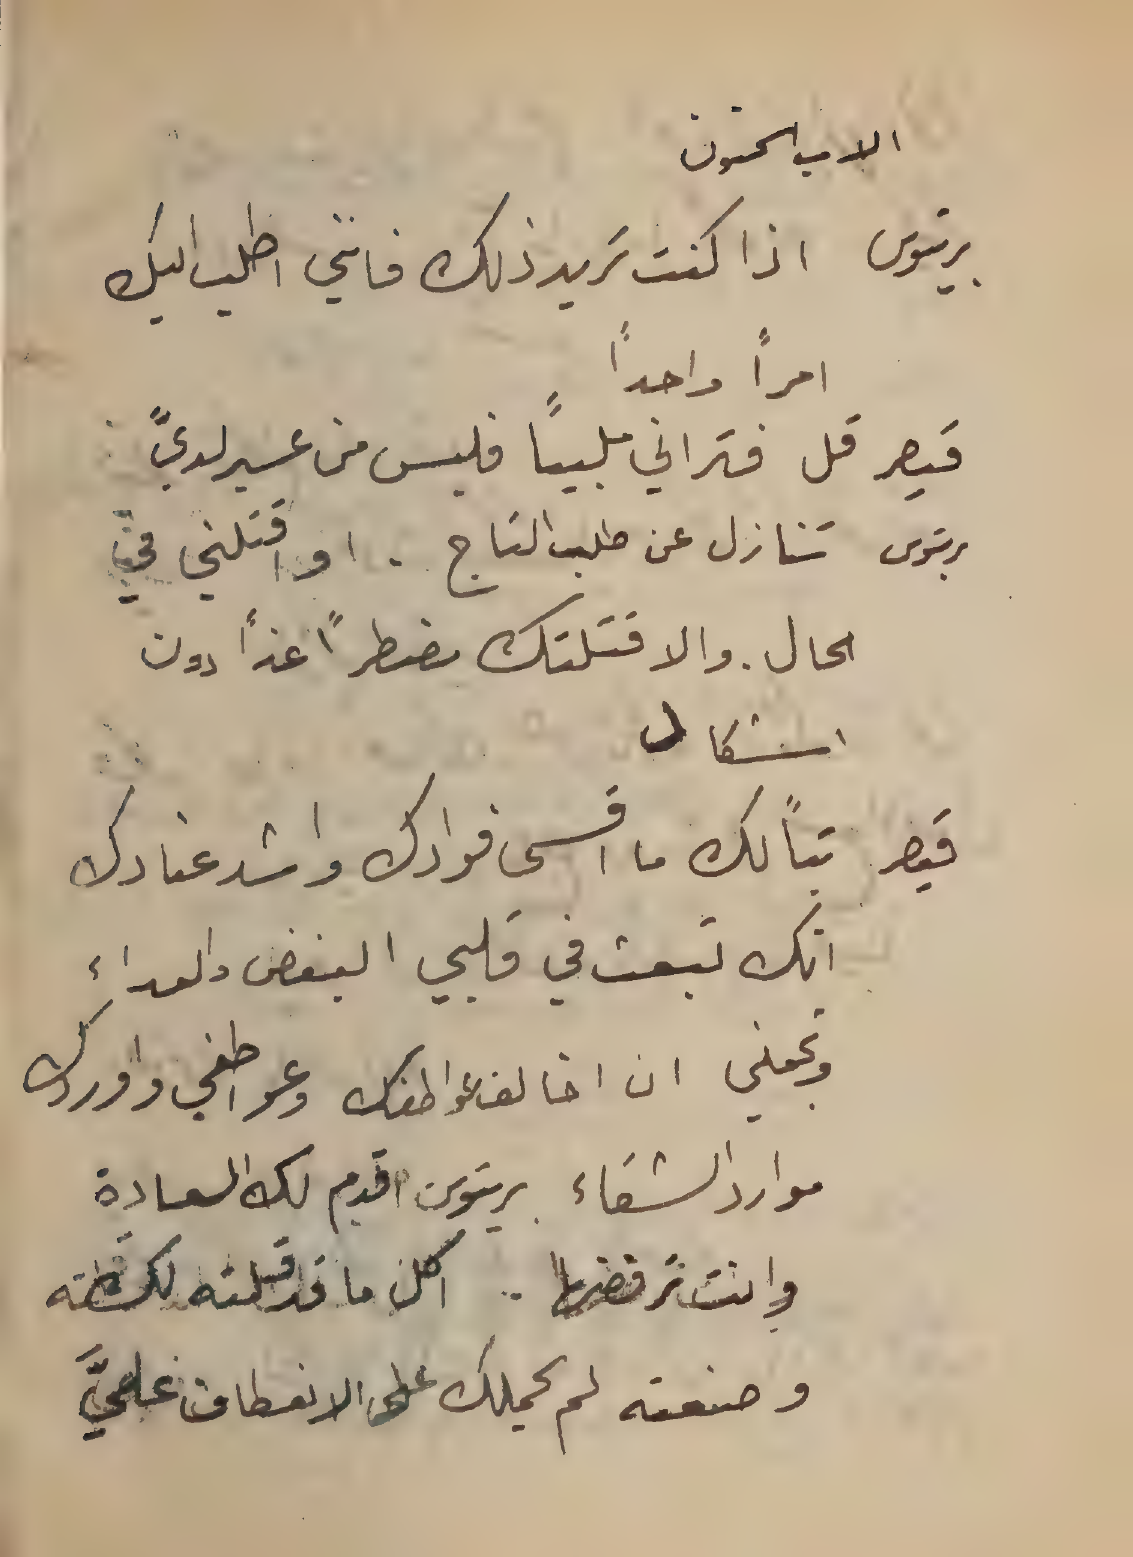 الاب الحنون
بريتوس اذا كنت تريد ذلك فانني اطلب اليك
امراً واحداً
قيصر قل فتراني ملبياً فليس من عسير لديَّ
بريتوس تنازل عن طلب التاج . او اقتلني في
الحال . والا قتلتك مضطراً غداً دون
استشكال
قيصر تباً لك ما اقسى فوادك واشد عنادك
انك تبعث في قلبي البغض والعداء
وتجعلني ان اخالف عواطفك وعواطفي واوردك
موارد الشقاء بريتوس اقدم لك السعادة
وانت ترفضها .. اكل ما قد قلته لك
وصنعته لم يحملك على الانعطاف عليَّ